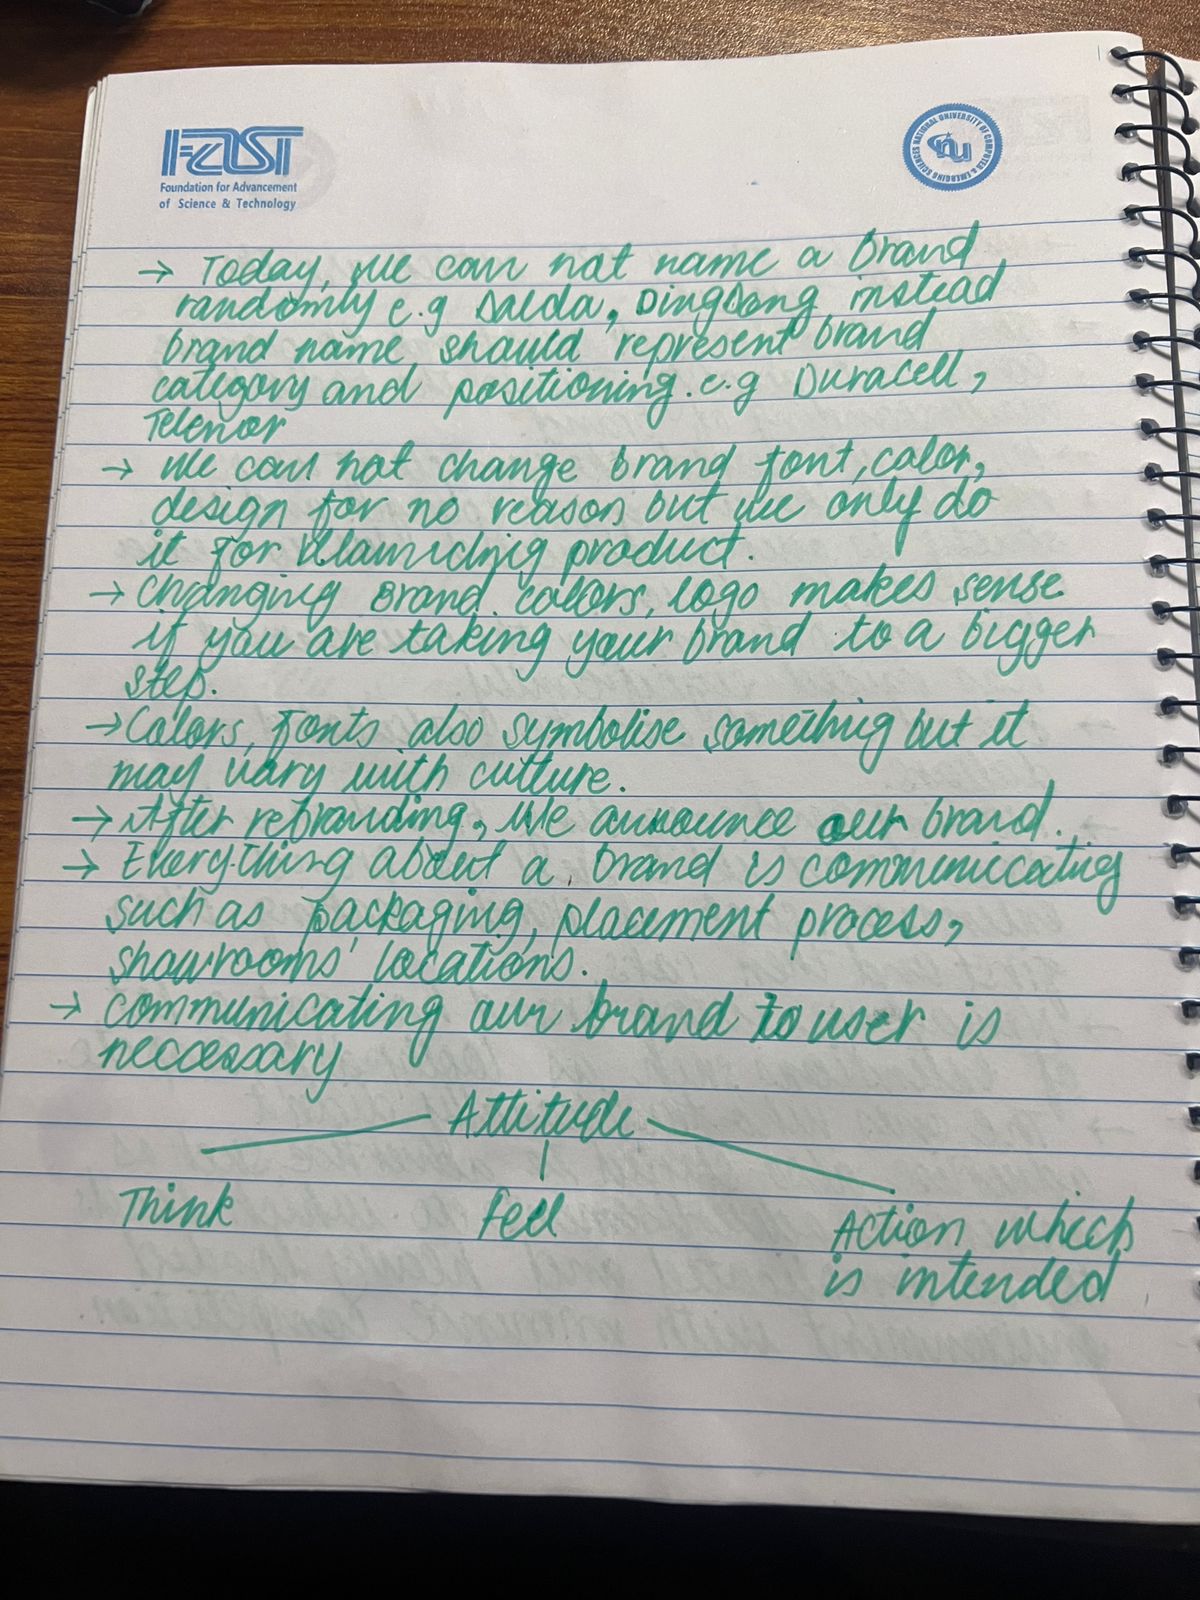 FAST
Foundation for Advancement
of Science & Technology
NATIONAL UNIVERSITY OF COMPUTER & EMERGING SCIENCES
nu
→ Today, we can not name a brand
randomly e.g Dalda, DingDong instead
brand name should represent brand
category and positioning. e.g Duracell,
Telenor
→ We can not change brand font, color,
design for no reason but we only do
it for product.
→ Changing Brand colors, logo makes sense
if you are taking your brand to a bigger
step.
→ Colors, fonts also symbolise something but it
may vary with culture.
→ After rebranding, we announce our brand.
→ Everything about a brand is communiccating
such as packaging, placement process,
showrooms' locations.
→ communicating our brand to user is
neccessary
Attitude
Think Feel Action which
is intended